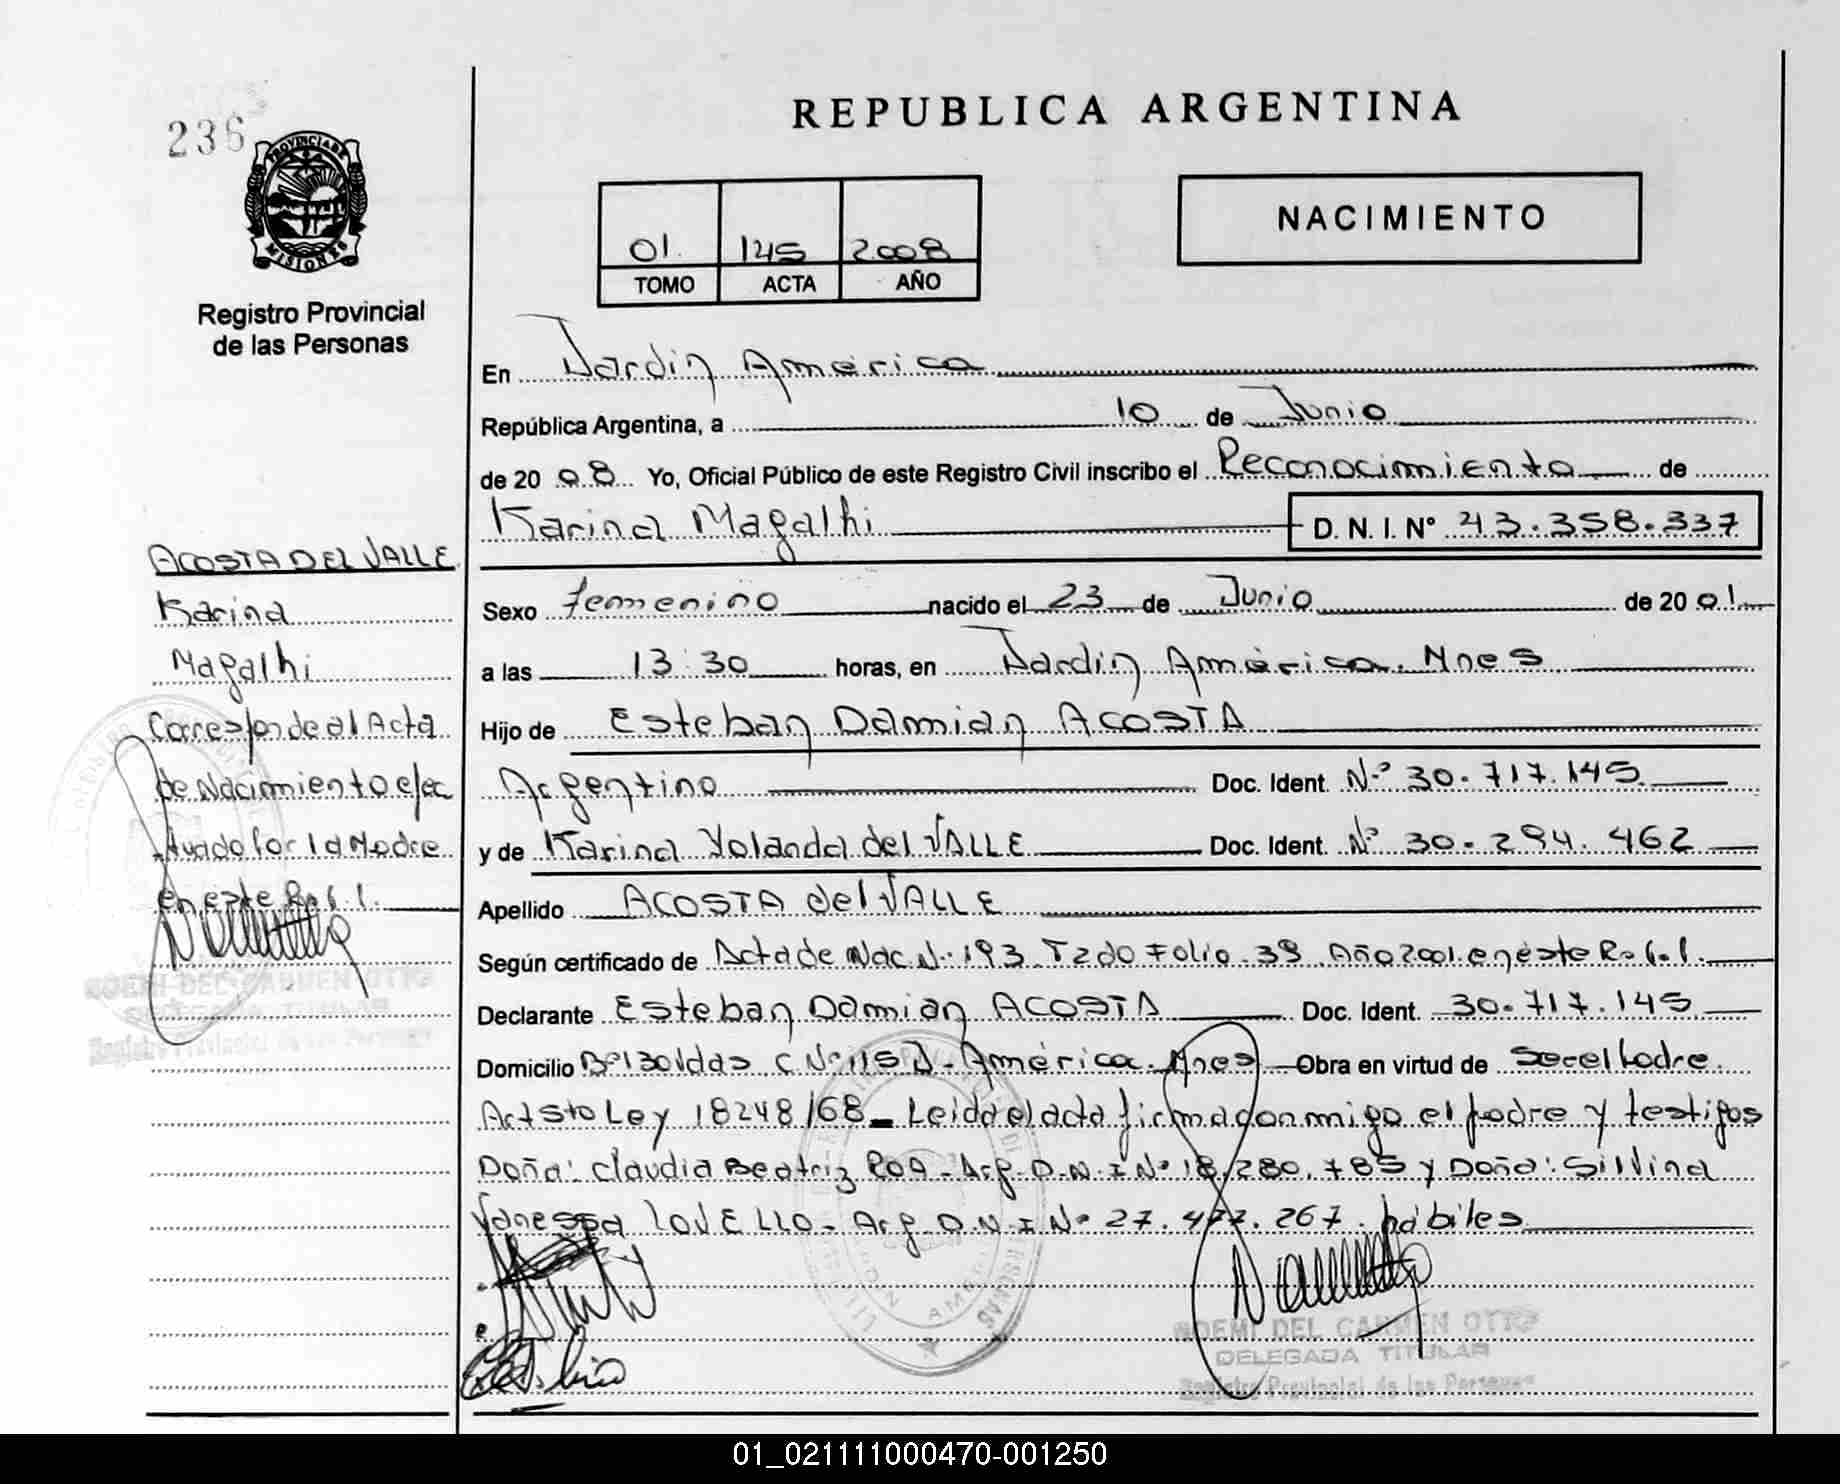 REPUBLICA ARGENTINA
236
PROVINCIA DE
MISIONES
Registro Provincial
de las Personas
01. 145 2008
TOMO ACTA AÑO
NACIMIENTO
En Jardin América
República Argentina, a 10 de Junio
de 20 08 Yo, Oficial Público de este Registro Civil inscribo el Reconocimiento de
Karina Magalhi D. N. I. N° 43.358.337
Sexo femenino nacido el 23 de Junio de 20 01
a las 13:30 horas, en Jardin América. Mnes
Hijo de Esteban Damian ACOSTA
Argentino Doc. Ident. N° 30.717.145
y de Karina Yolanda del VALLE Doc. Ident. N° 30.294.462
Apellido ACOSTA del VALLE
Según certificado de Acta de Nac. N: 193 T2do Folio 39 Año 2001 en este
Declarante Esteban Damian ACOSTA Doc. Ident. 30.717.145
Domicilio América. Mnes Obra en virtud de
Art 5to Ley 18248/68 - Leida el acta firma conmigo el padre y testigos
Doña: Claudia Beatriz ROA - Arg. D.N.I N° 18.280.785 y Doña: Silvina
Vanessa LOVELLO - Arg. D.N.I N° 27.477.267. hábiles
NOEMI DEL CARMEN OTTO
DELEGADA TITULAR
Registro Provincial de las Personas
ACOSTA DEL VALLE
Karina
Magalhi
Corresponde al Acta
de Nacimiento efec
tuado por la Madre
en este
NOEMI DEL CARMEN OTTO
DELEGADA TITULAR
Registro Provincial de las Personas
01_021111000470-001250